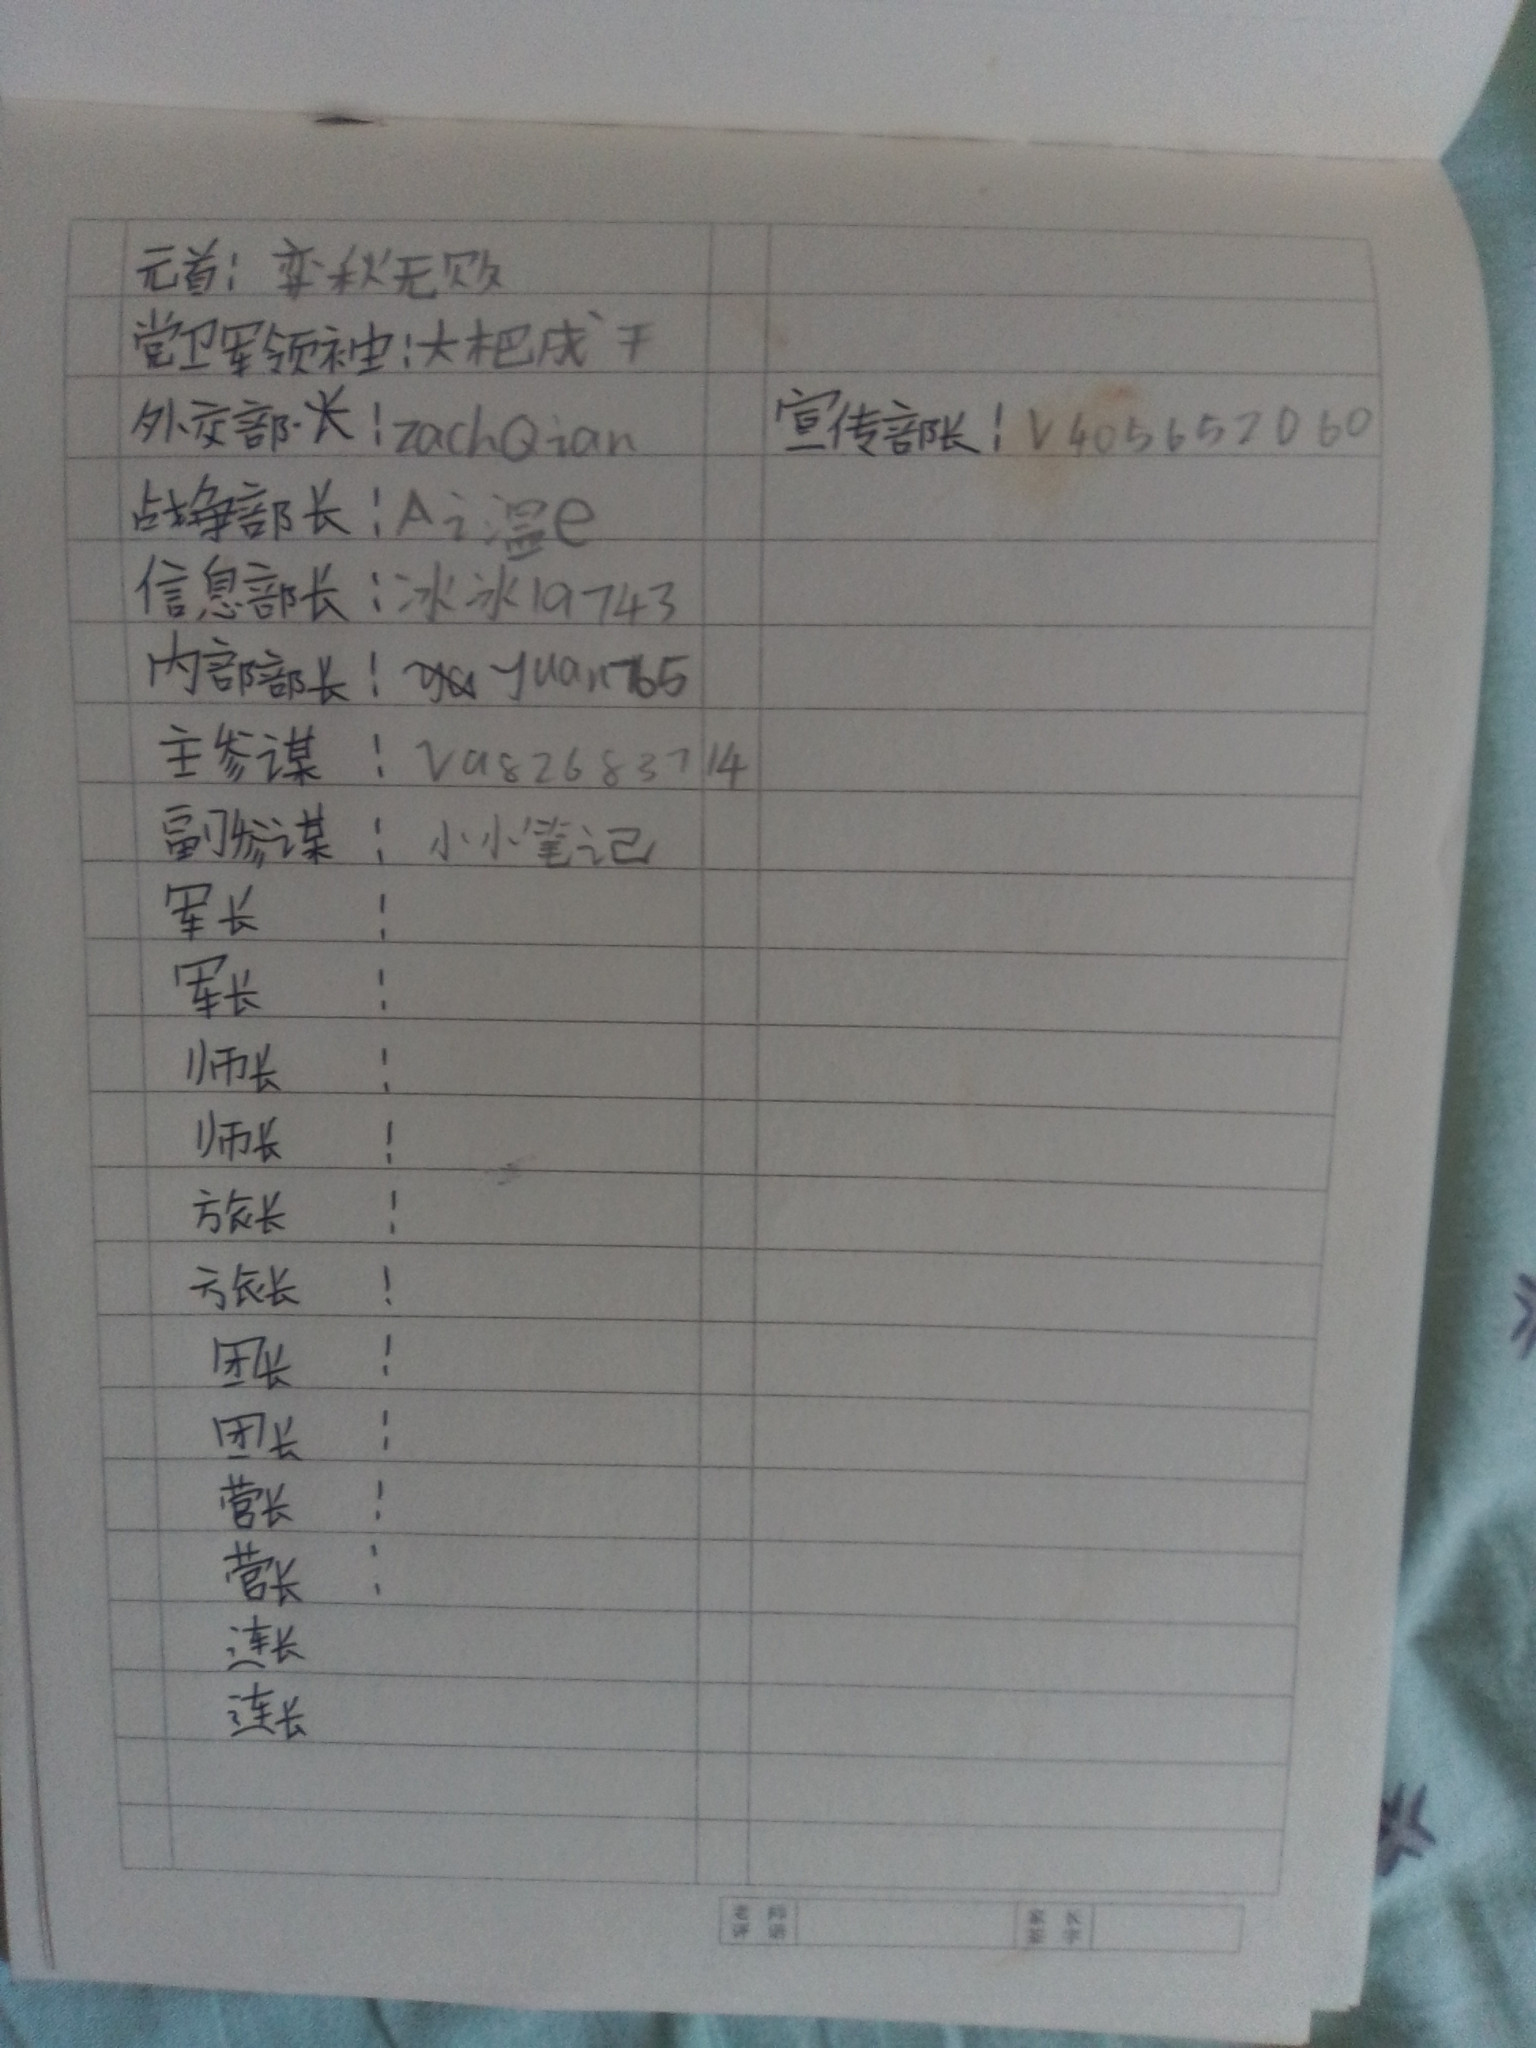 元首：弈秋无败
党卫军领袖：大杷成干
外交部长：zachQian
宣传部长：V405652060
战争部长：A之温e
信息部长：冰冰19743
内部部长：yuan765
主参谋：V982683714
副参谋：小小笔记
军长：
军长：
师长：
师长：
旅长：
旅长：
团长：
团长：
营长：
营长：
连长
连长
老师评语
家长签字